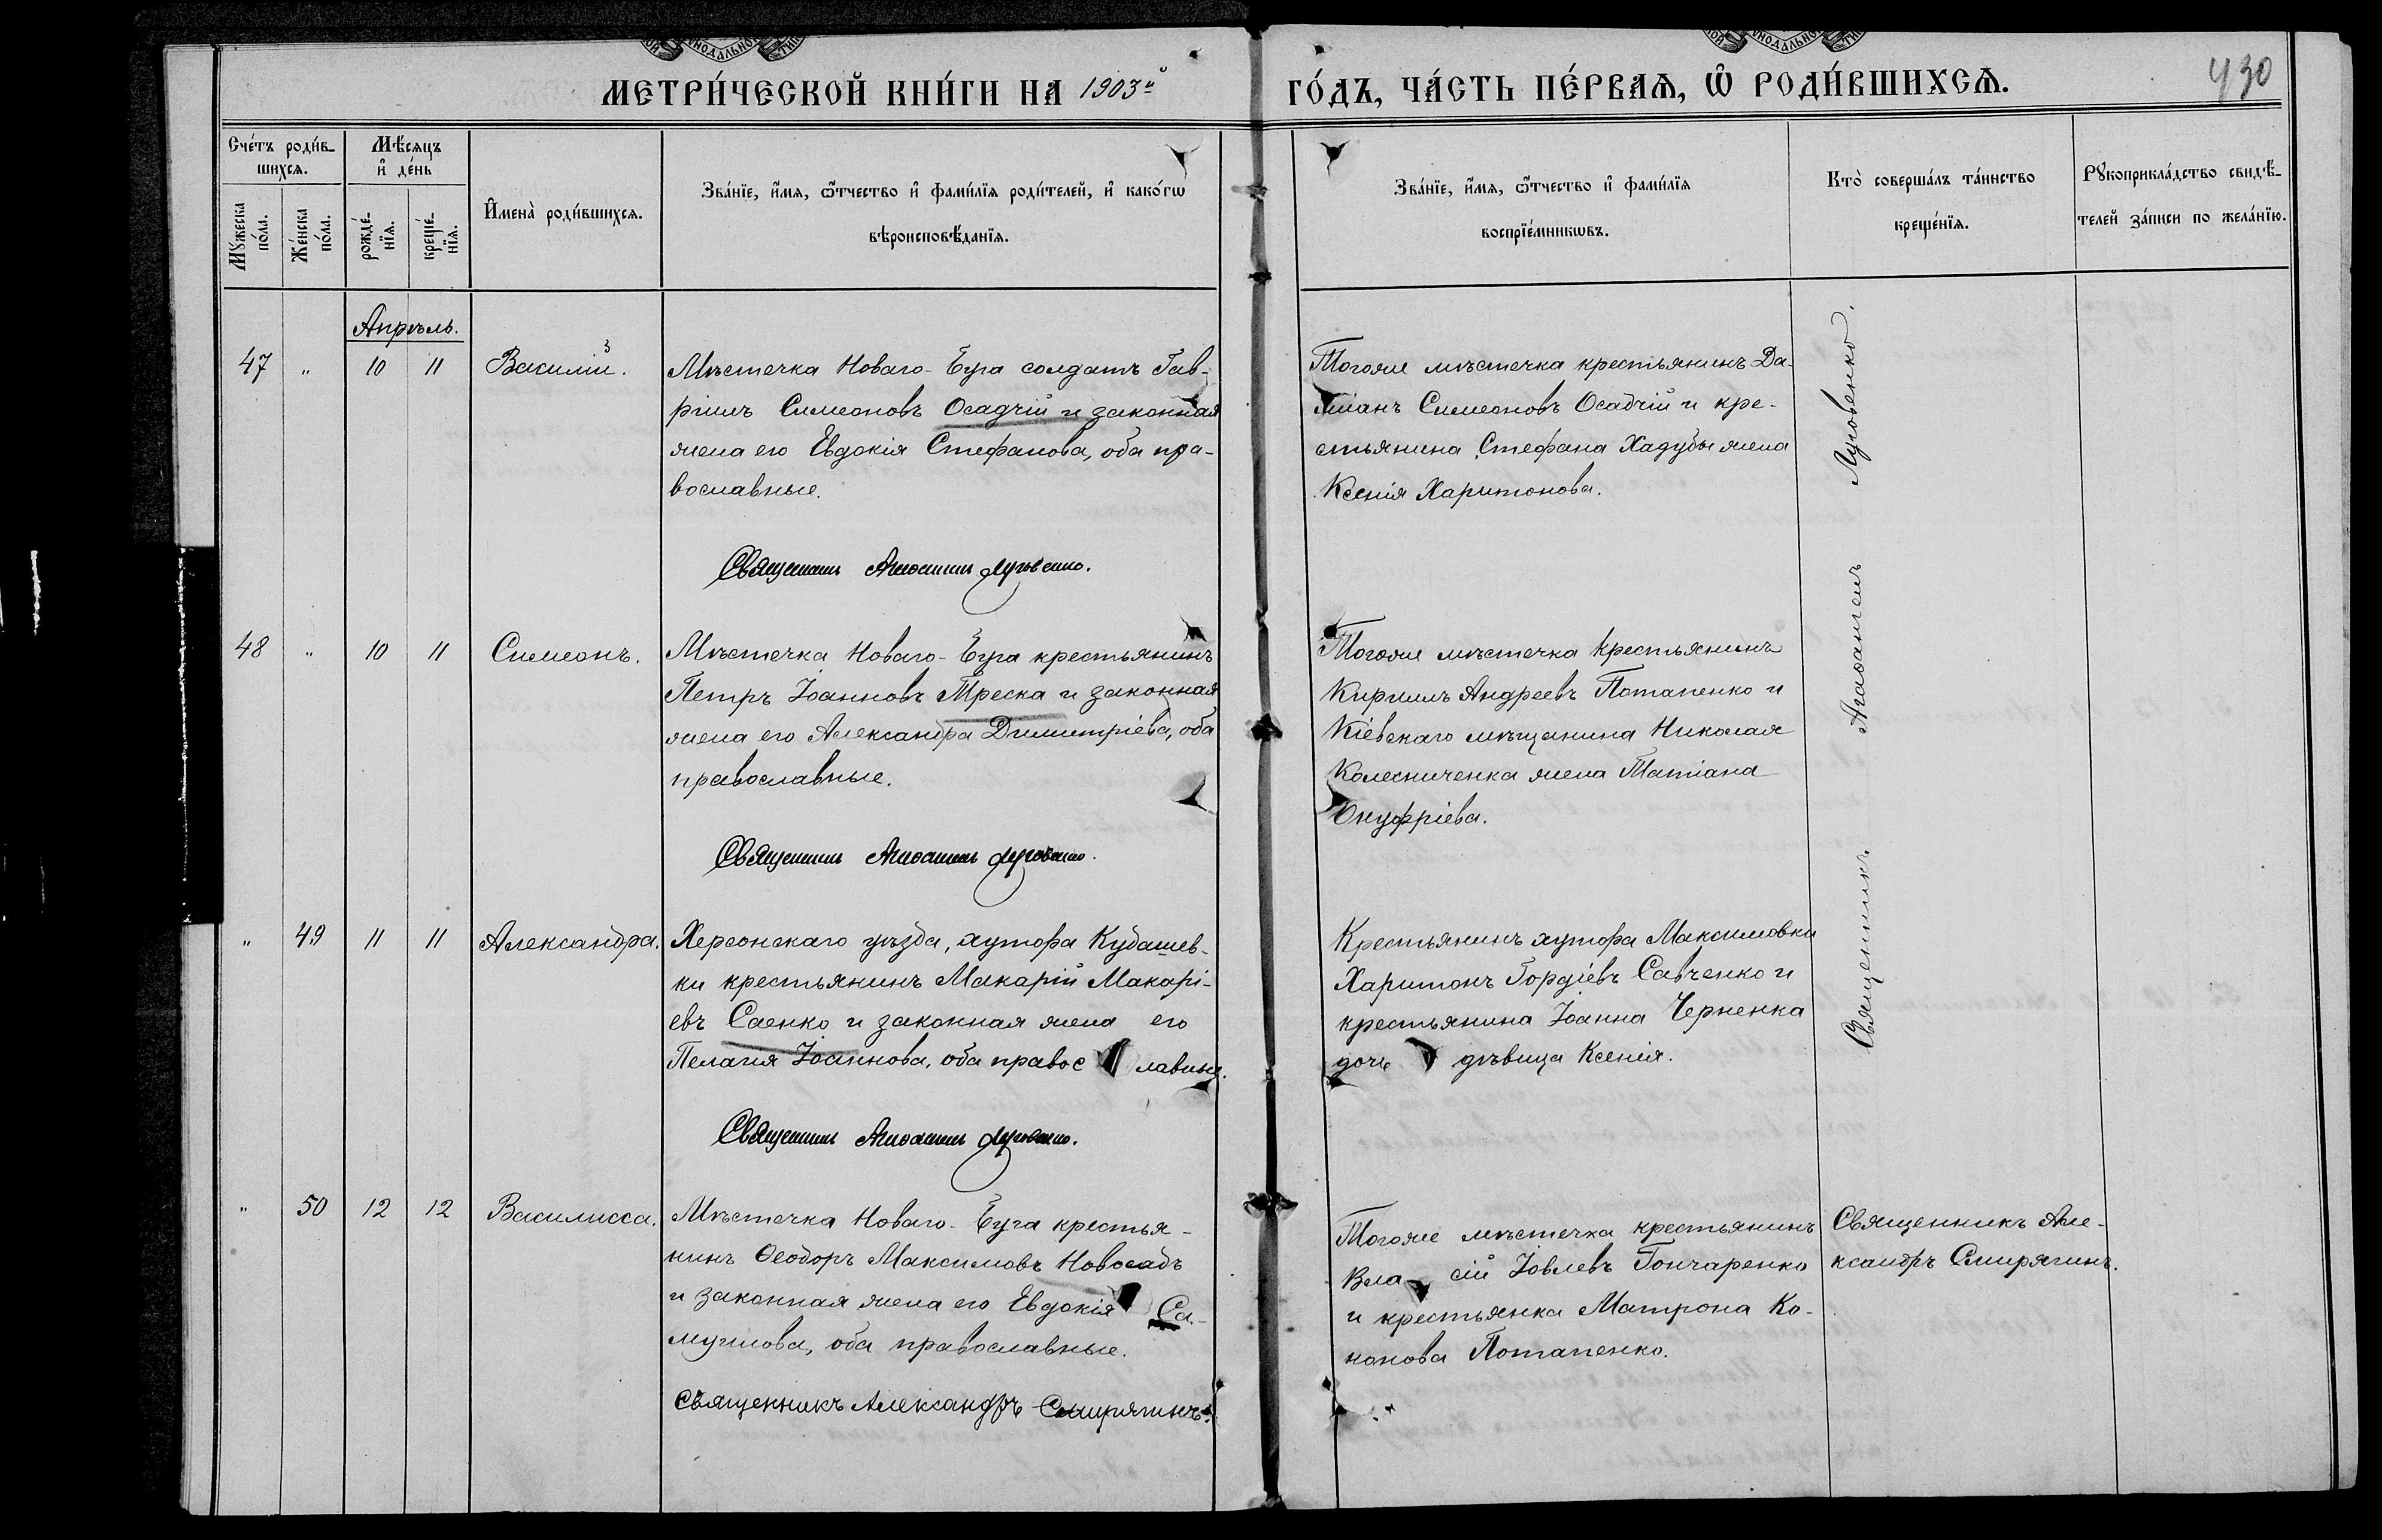 МЕТРИ́ЧЕСКОЙ КНИ́ГИ НА 1903й ГО́ДЪ, ЧА́СТЬ ПЕ́РВАѦ, Ѡ҆ РОДИ́ВШИХСѦ.
430
Сче́тъ роди́в-
шихсѧ.
Мѣ́сяцъ
и҆ де́нь
Мꙋ́жеска
по́ла.
Же́нска
по́ла.
рожде́-
нїѧ.
креще́-
нїѧ.
И҆мена̀ роди́вшихсѧ.
Зва́нїе, и҆́мѧ, ѻ҆́тчество и҆ фами́лїѧ роди́телей, и҆ како́гѡ
вѣроисповѣ́данїѧ.
Зва́нїе, и҆́мѧ, ѻ҆́тчество и҆ фами́лїѧ
воспрїе́мникѡвъ.
Кто̀ соверша́лъ та́инство
креще́нїѧ.
Рꙋкоприкла́дство свидѣ́-
телей за́писи по жела́нїю.
Апрѣль.
47 " 10 11 Василій.
Мѣстечка Новаго-Буга солдатъ Гав-
ріилъ Симеоновъ Осадчій и законная
жена его Евдокія Стефанова, оба пра-
вославные.
Священникъ Агаѳангелъ Луговенко.
Тогоже мѣстечка крестьянинъ Да-
міанъ Симеоновъ Осадчій и кре-
стьянина Стефана Хадубы жена
Ксенія Харитонова.
48 " 10 11 Симеонъ.
Мѣстечка Новаго-Буга крестьянинъ
Петръ Іоанновъ Треска и законная
жена его Александра Димитріева, оба
православные.
Священникъ Агаѳангелъ Луговенко.
Тогоже мѣстечка крестьянинъ
Кириллъ Андреевъ Потапенко и
Кіевскаго мѣщанина Николая
Колесниченка жена Татіана
Онуфріева.
" 49 11 11 Александра.
Херсонскаго уѣзда, хутора Кудашев-
ки крестьянинъ Макарій Макарі-
евъ Саенко и законная жена его
Пелагія Іоаннова, оба православные.
Священникъ Агаѳангелъ Луговенко.
Крестьянинъ хутора Максимовки
Харитонъ Гордіевъ Савченко и
крестьянина Іоанна Черненка
дочь дѣвица Ксенія.
Священникъ Агаѳангелъ Луговенко.
" 50 12 12 Василисса.
Мѣстечка Новаго-Буга крестья-
нинъ Ѳеодоръ Максимовъ Новосадъ
и законная жена его Евдокія Са-
муилова, оба православные.
Священникъ Александръ Смирягинъ.
Тогоже мѣстечка крестьянинъ
Власій Іовлевъ Гончаренко
и крестьянка Матрона Ко-
нонова Потапенко.
Священникъ Але-
ксандръ Смирягинъ.